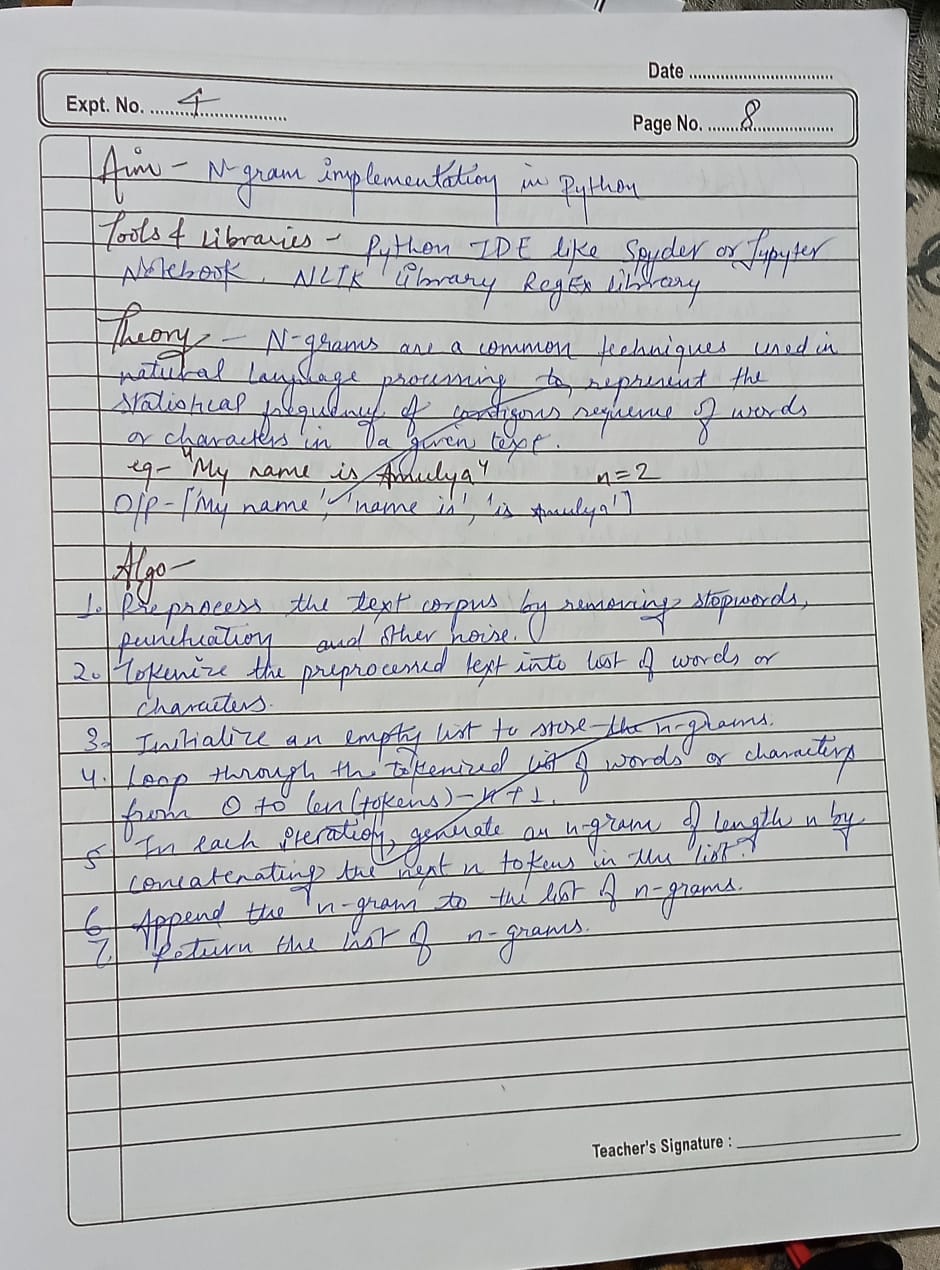 Date
Expt. No. 4
Page No. 8
Aim - N-gram implementation in Python
Tools & Libraries - Python IDE like Spyder or Jupyter
Notebook, NLTK library RegEx library
Theory - N-grams are a common techniques used in
natural language processing to represent the
statistical frequency of contigous sequence of words
or characters in a given text.
eg- "My name is Amulya" n=2
O/p - ['My name', 'name is', 'is Amulya']
Algo-
1. Preprocess the text corpus by removing stopwords,
punctuation and other noise.
2. Tokenize the preprocessed text into list of words or
characters.
3. Initialize an empty list to store the n-grams.
4. Loop through the tokenized list of words or characters
from 0 to len(tokens)-n+1.
5 In each iteration, generate an n-gram of length n by
concatenating the next n tokens in the list.
6 Append the n-gram to the list of n-grams.
7. Return the list of n-grams.
Teacher's Signature :